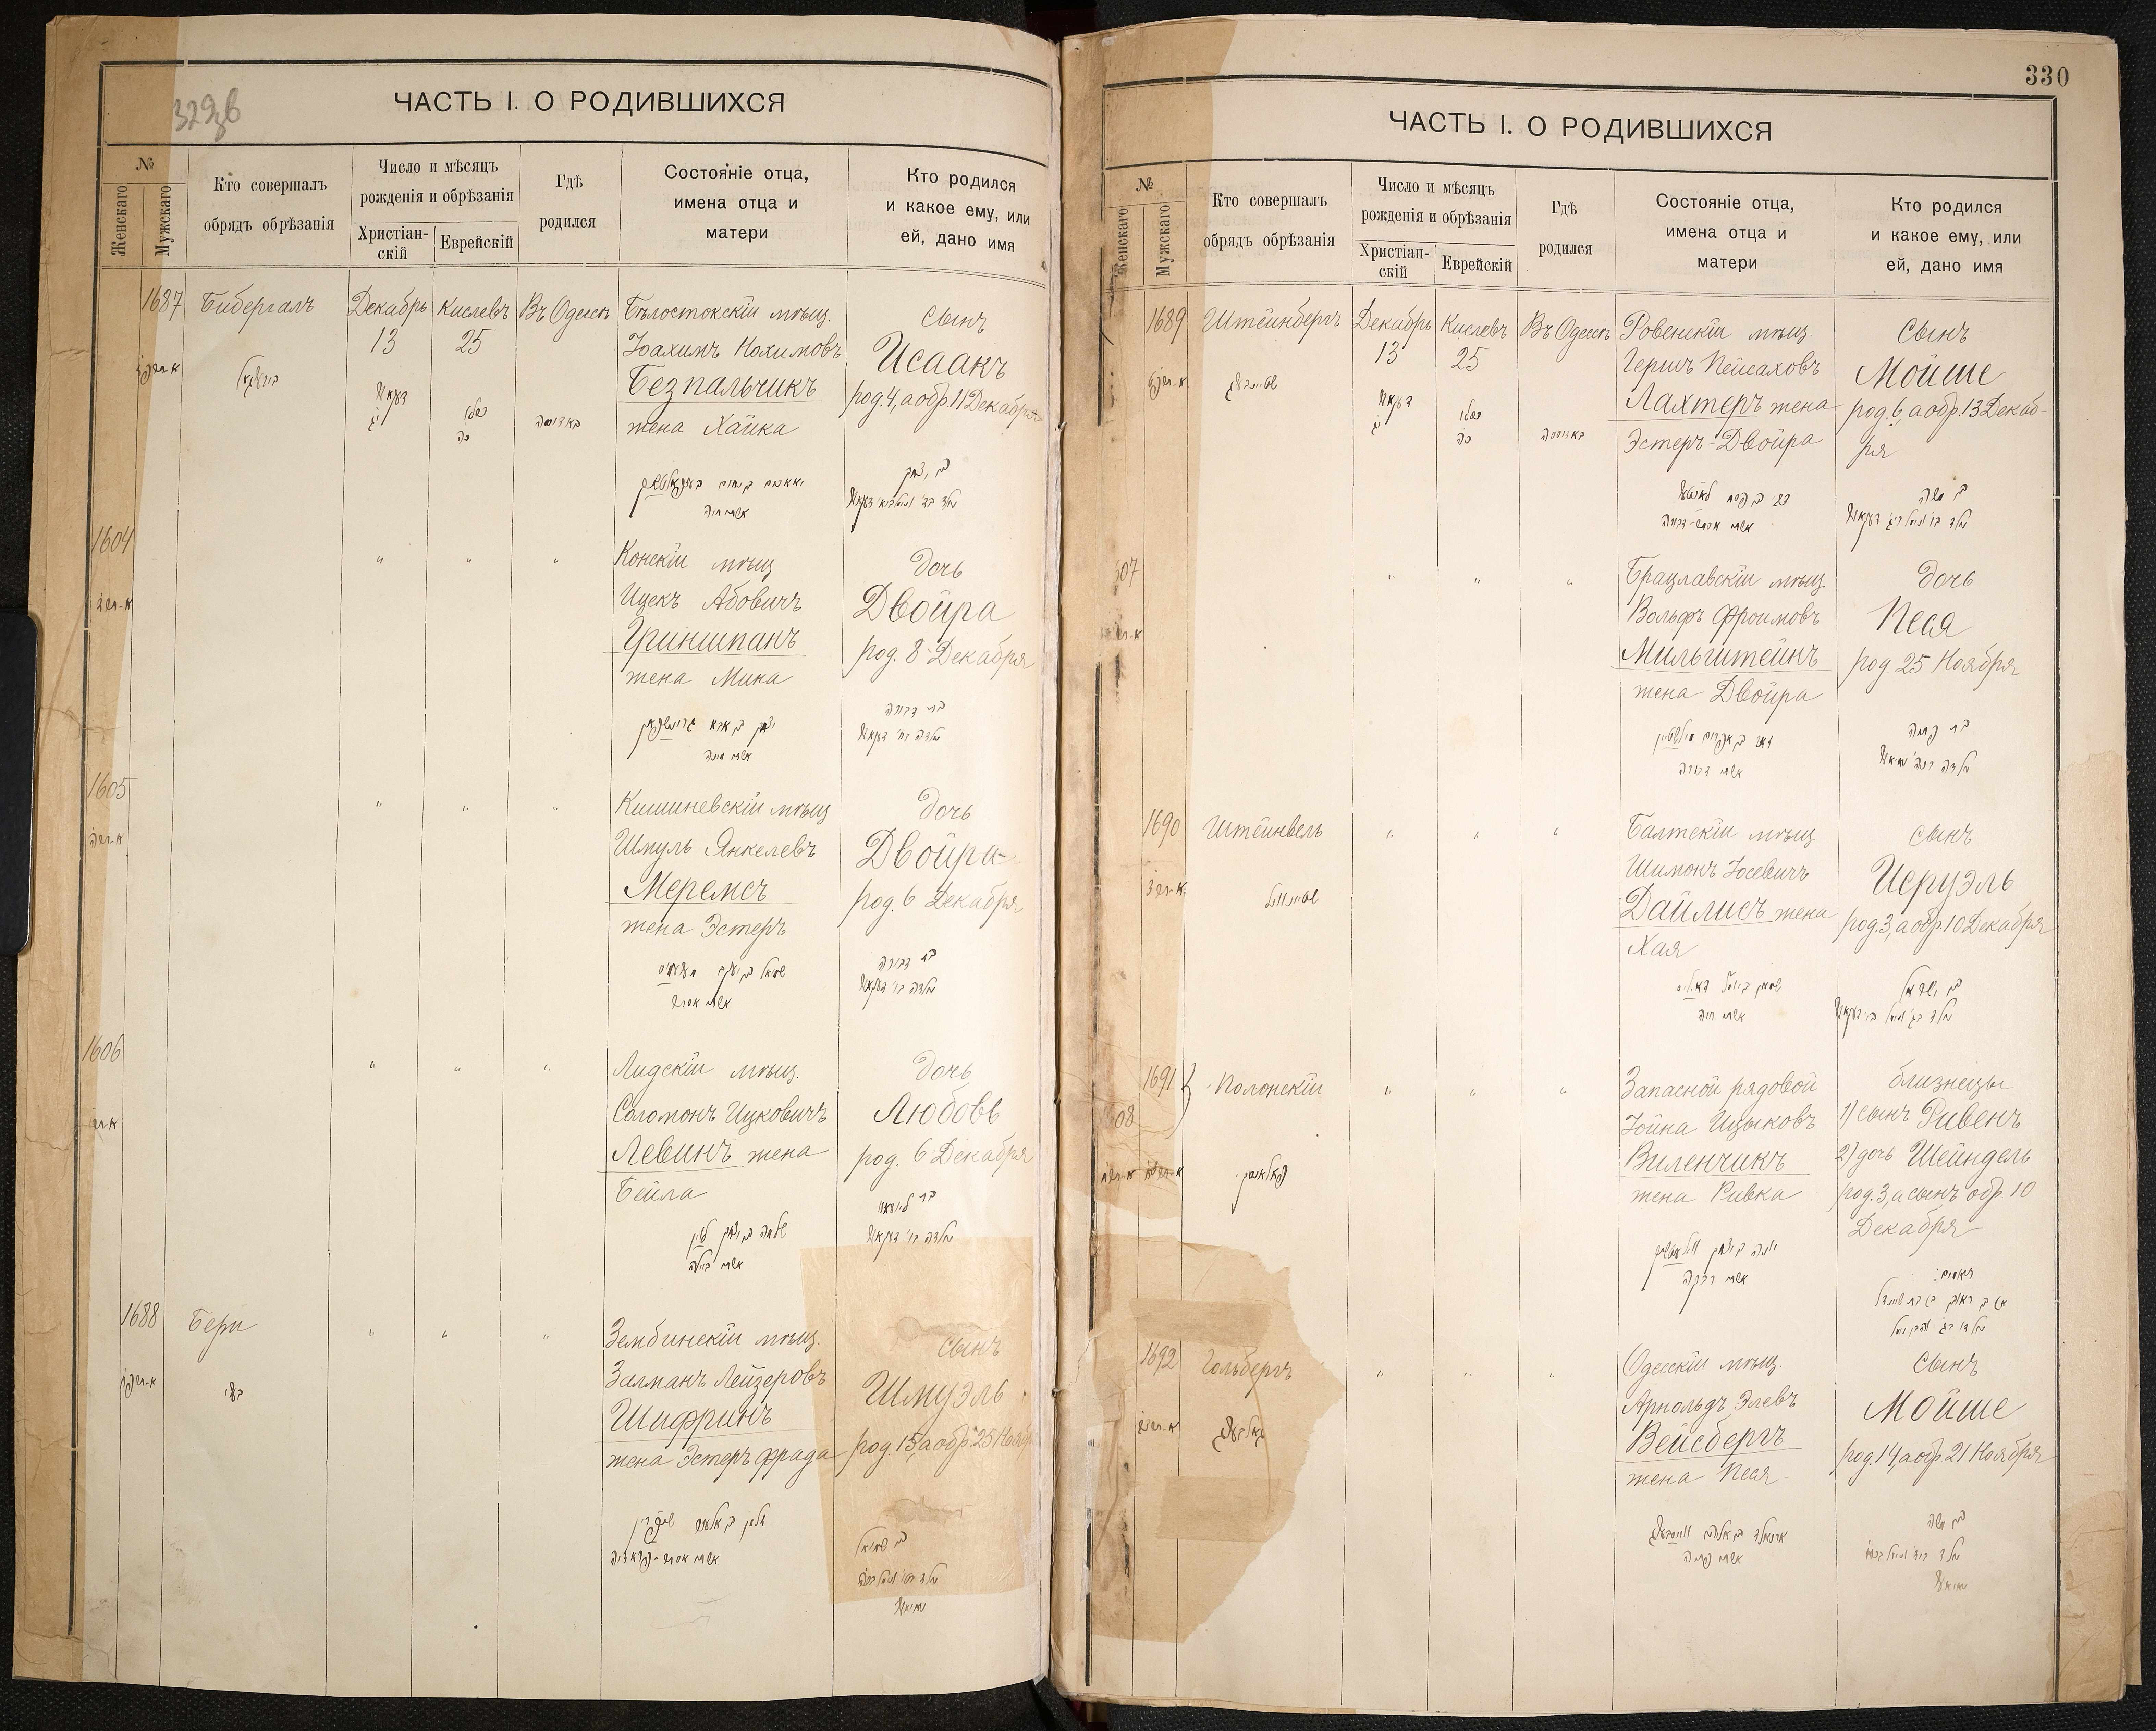 329зв
ЧАСТЬ I. О РОДИВШИХСЯ
№
Женскаго
Мужскаго
Кто совершалъ
обрядъ обрѣзанія
Число и мѣсяцъ
рожденія и обрѣзанія
Христіан-
скій
Еврейскій
Гдѣ
родился
Состояніе отца,
имена отца и
матери
Кто родился
и какое ему, или
ей, дано имя
1687
Бибергалъ
Декабрь
13
Кислевъ
25
Въ Одессѣ
Бѣлостокскій мѣщ.
Іоахимъ Нохимовъ
Безпальчикъ
жена Хайка
сынъ
Исаакъ
род. 4, а обр. 11 Декабря
כסלו
כה
באדעסה
אשתו חיה
בן יצחק
1604
"
"
"
Конскій мѣщ
Ицекъ Абовичъ
Гриншпанъ
жена Мина
дочь
Двойра
род. 8 Декабря
יצחק בן אבא גרינשפאן
אשתו מינה
בת דבורה
1605
"
"
"
Кишиневскій мѣщ
Шмуль Янкелевъ
Меремсъ
жена Эстеръ
дочь
Двойра
род. 6 Декабря
שמואל בן יעקב
אשתו אסתר
בת דבורה
1606
"
"
"
Лидскій мѣщ.
Соломонъ Ицковичъ
Левинъ жена
Бейла
дочь
Любовь
род. 6 Декабря
שלמה בן יצחק לעווין
אשתו ביילה
1688
Бери
"
"
"
Зембинскій мѣщ.
Залманъ Лейзеровъ
Шифринъ
жена Эстеръ Фрада
сынъ
Шмуэль
род. 15, а обр. 25 Нояб
זלמן בן אליעזר שיפרין
בן שמואל
330
ЧАСТЬ I. О РОДИВШИХСЯ
№
Женскаго
Мужскаго
Кто совершалъ
обрядъ обрѣзанія
Число и мѣсяцъ
рожденія и обрѣзанія
Христіан-
скій
Еврейскій
Гдѣ
родился
Состояніе отца,
имена отца и
матери
Кто родился
и какое ему, или
ей, дано имя
1689
Штейнбергъ
Декабрь
13
Кислевъ
25
Въ Одессѣ
Ровенскій мѣщ.
Гершъ Пейсаховъ
Лахтеръ жена
Эстеръ-Двойра
сынъ
Мойше
род. 6, а обр. 13 Декаб-
ря
כסלו
כה
אשתו אסתר-דבורה
בן משה
607
"
"
"
Брацлавскій мѣщ.
Вольфъ Фроимовъ
Мильштейнъ
жена Двойра
дочь
Песя
род 25 Ноября
זאב בן אפרים מילשטיין
אשתו דבורה
בת פסיה
1690
Штейнвель
"
"
"
Балтскій мѣщ
Шимонъ Іосевичъ
Дайлисъ жена
Хая
сынъ
Исруэль
род. 3, а обр. 10 Декабря
אשתו חיה
בן ישראל
1691
608
Полонскій
"
"
"
Запасной рядовой
Іойна Ицыковъ
Виленчикъ
жена Ривка
близнецы
1) сынъ Рувенъ
2) дочь Шейндель
род. 3, а сынъ обр. 10
Декабря
יונה בן יצחק
אשתו רבקה
תאומים:
1692
Гольбергъ
"
"
"
Одесскій мѣщ.
Арнольдъ Элевъ
Вейсбергъ
жена Песя
сынъ
Мойше
род. 14, а обр. 21 Ноября
אשתו פסיה
בן משה